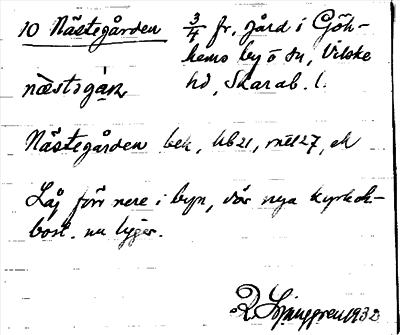 10 Nästegården 3/4 fr. gård i Gök-
hems by o sn, Vilske
hd, Skarab. l.
næstəgán
Nästegården bek, hb21, mtl27, ek
Låg förr nere i byn, där nya kyrkoh-
bost. nu ligger.
R Ljunggren 1932